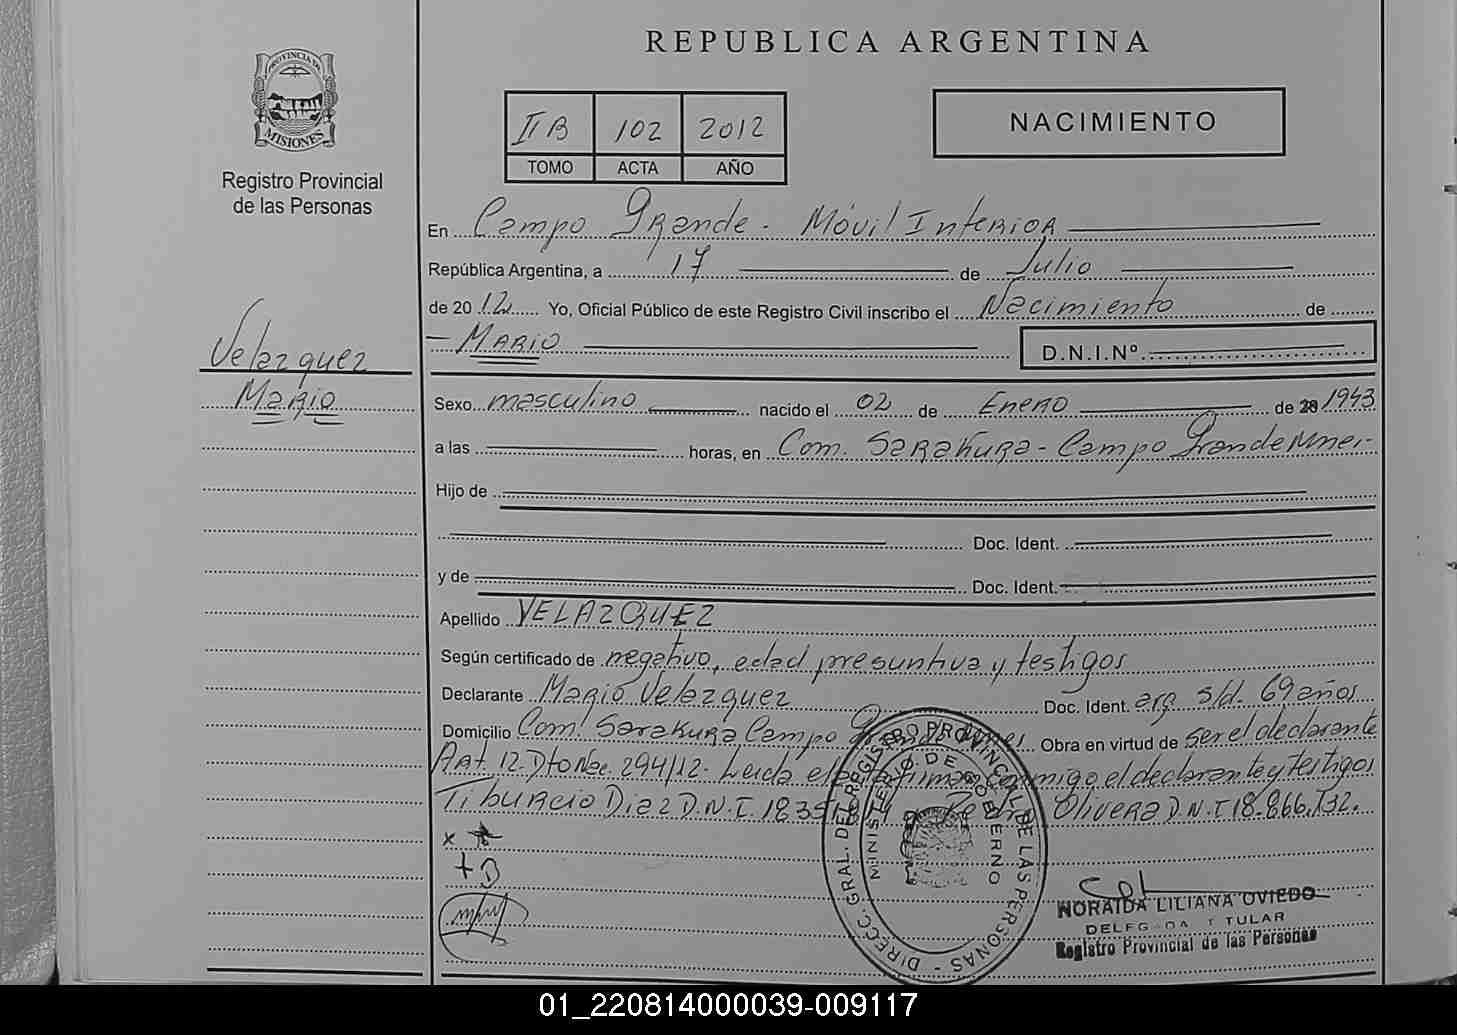 REPUBLICA ARGENTINA
PROVINCIA DE
MISIONES
Registro Provincial
de las Personas
II B 102 2012
TOMO ACTA AÑO
NACIMIENTO
En Campo Grande - Móvil Interior
República Argentina, a 17 de Julio
de 2012 Yo, Oficial Público de este Registro Civil inscribo el Nacimiento de
Mario
D.N.I.Nº
Velazquez
Mario
Sexo masculino nacido el 02 de Enero de 1943
a las horas, en Com. Sarakura - Campo Grande Mnes-
Hijo de
Doc. Ident.
y de Doc. Ident.
Apellido VELAZQUEZ
Según certificado de negativo, edad presuntiva y testigos
Declarante Mario Velazquez Doc. Ident. arg s/d. 69 años
Domicilio Com. Sarakura Campo Obra en virtud de ser el declarante
Art. 12 Dto Nac. 294/12. Leida el conmigo el declarante y testigos
Tiburcio Diaz D.N.I. 18.35 Olivera D.N.I 18.866.132.
x
+
DIRECC. GRAL. DEL REGISTRO PROVINCIAL DE LAS PERSONAS -
MINISTERIO DE GOBIERNO
NORAIDA LILIANA OVIEDO
TITULAR
Registro Provincial de las Personas
01_220814000039-009117